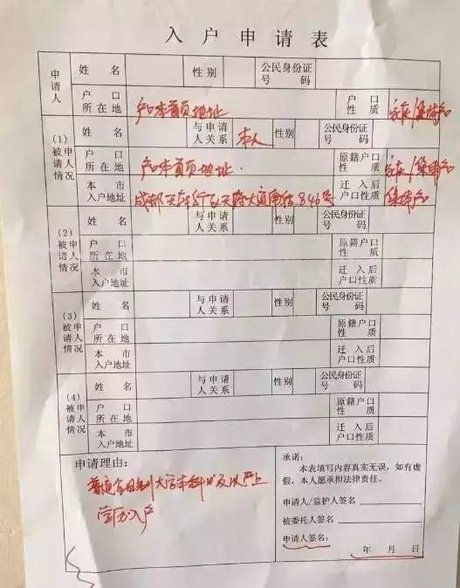 入户申请表
申请人 姓名 性别 公民身份证号码
户口所在地 户口本首页地址 户口性质 家庭/集体户
(1)被申请人情况 姓名 与申请人关系 本人 性别 公民身份证号码
户口所在地 户口本首页地址 原籍户口性质 家庭/集体户
本市入户地址 成都 天府大道南段846号 迁入后户口性质 集体户
(2)被申请人情况 姓名 与申请人关系 性别 公民身份证号码
户口所在地 原籍户口性质
本市入户地址 迁入后户口性质
(3)被申请人情况 姓名 与申请人关系 性别 公民身份证号码
户口所在地 原籍户口性质
本市入户地址 迁入后户口性质
(4)被申请人情况 姓名 与申请人关系 性别 公民身份证号码
户口所在地 原籍户口性质
本市入户地址 迁入后户口性质
申请理由：
普通全日制大学本科及以上
学历入户
承诺：
本表填写内容真实无误，如有虚
假，本人愿承担法律责任。
申请人/监护人签名
被委托人签名
申请人签名：
年 月 日